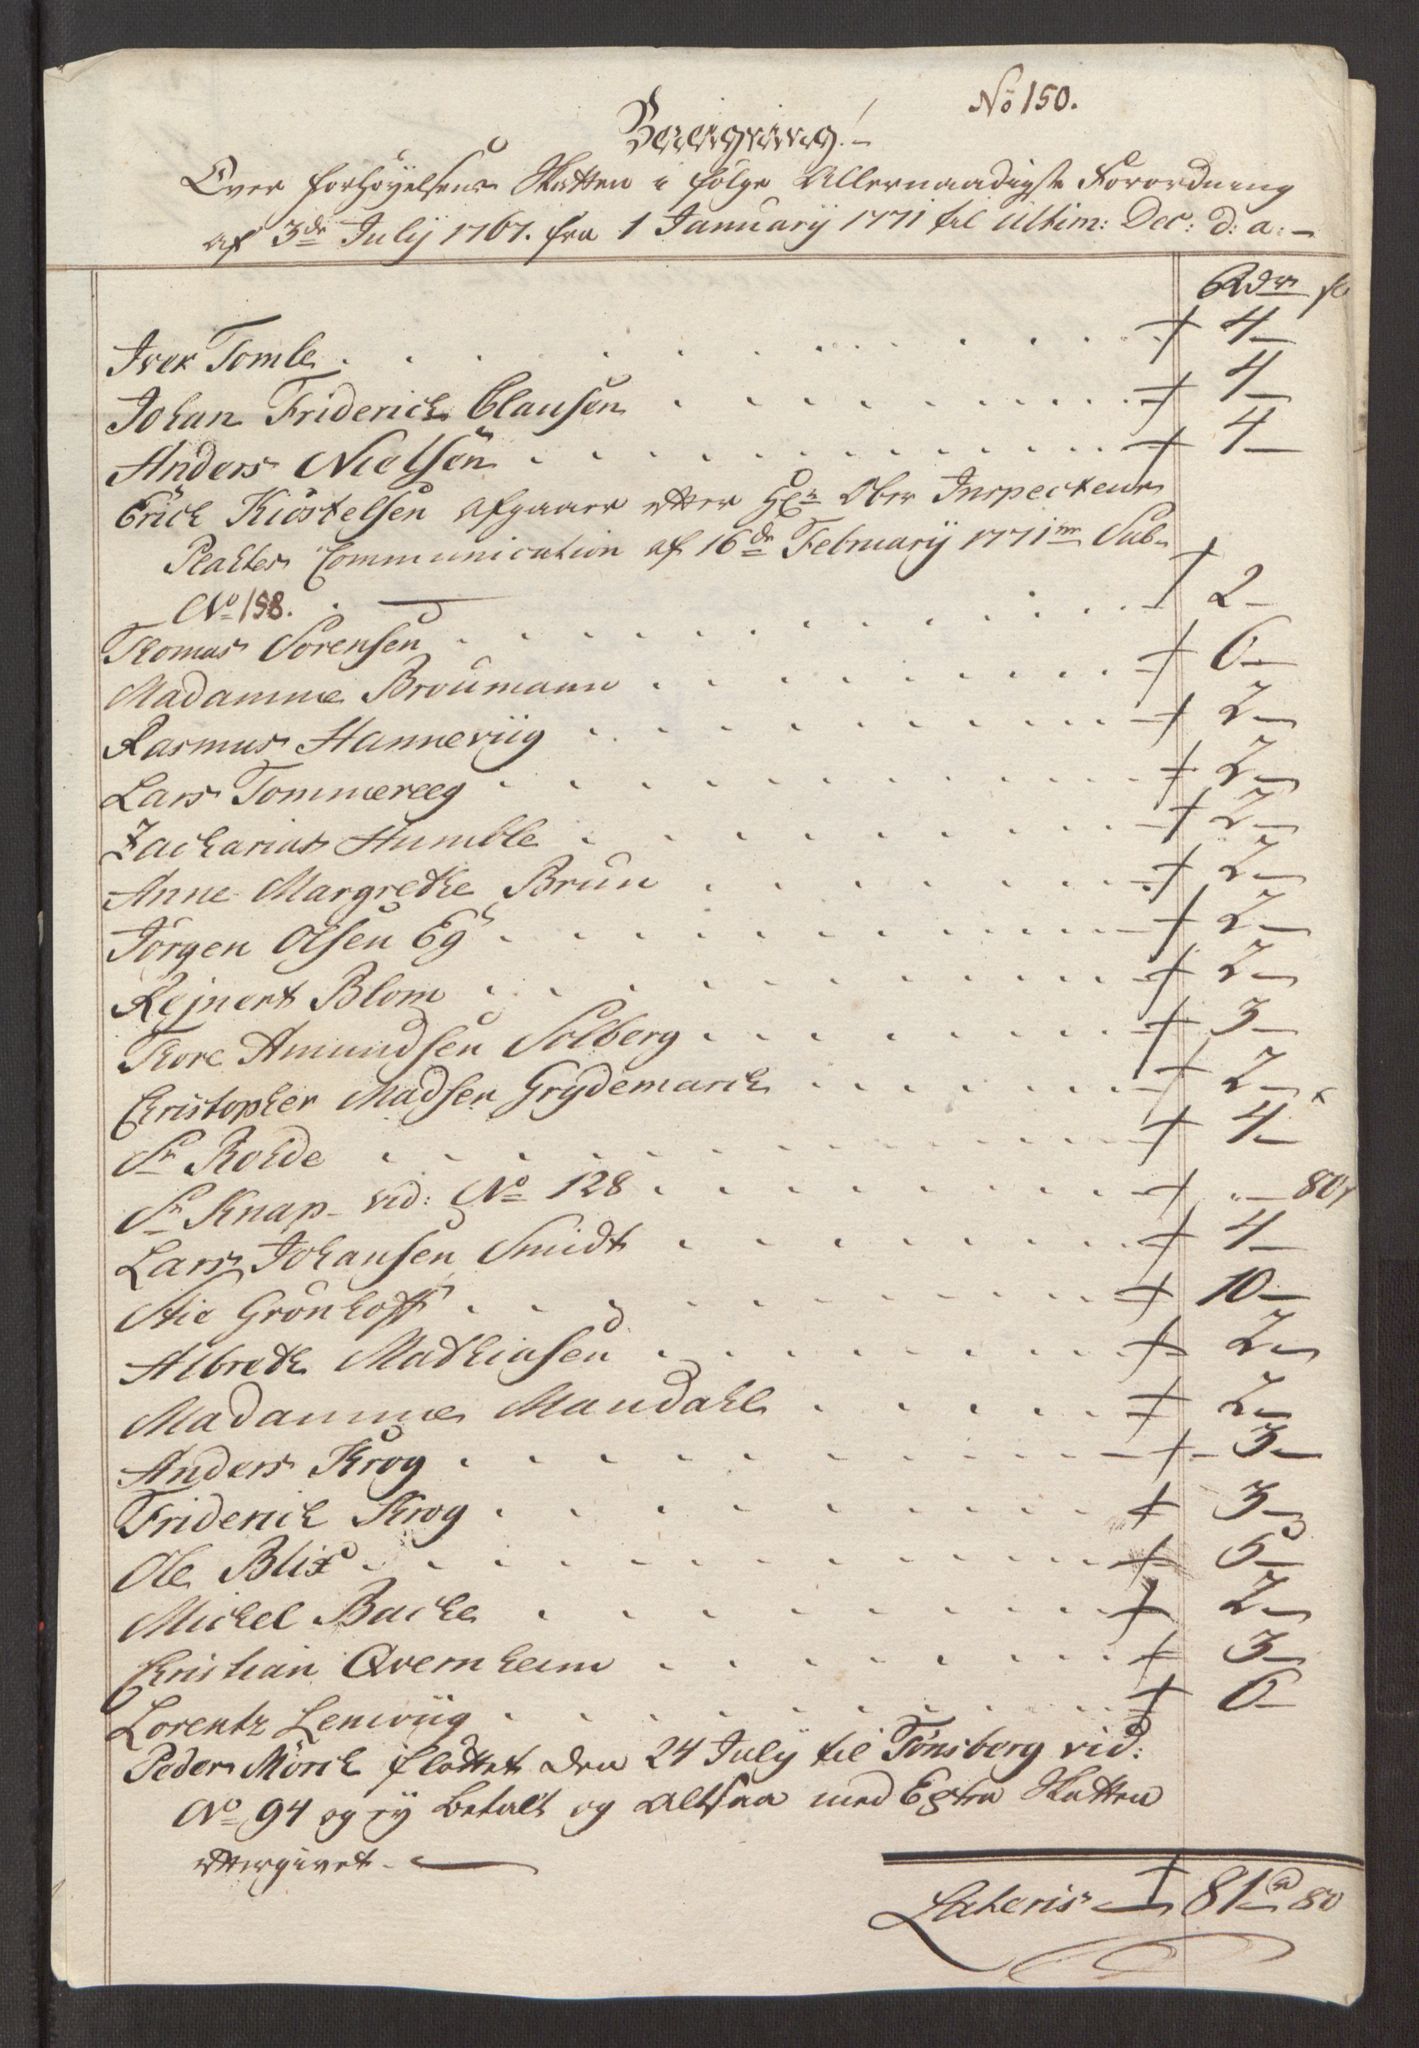 No 150.
Beregning!
Over Forhøyelsens Skatten i følge Allernaadigste Forordning
af 3de Julÿ 1767. fra 1 Januarÿ 1771 til Ultim: Dec: d: a:
Rdr s
Iver Tomle . . . 4
Johan Friderich Clausen . . . 4
Anders Nielsen . . . 4
Erich Kiøstelsen afgaaer efter Hr Ober Inspecteur
Communication af 16de Februarÿ 1771 Sub
No 158.
Thomas Sørensen . . . 2
Madamme Broumann . . . 6
Rasmus Hanneviig . . . 2
Lars Tommereeg . . . 2
Zacharias Humble . . . 2
Anne Margrethe Brun . . . 2
Jørgen Olsen Eg . . . 2
Rejnert Blom . . . 2
Thore Amundsen Solberg . . . 3
Christopher Madsen Grydemarch . . . 2
Sr Rohde . . . 4
Sr Knap vid: No 128 . . . 80
Lars Johansen Smidt . . . 4
Stie Grønhoff . . . 10
Albreth Mathiasen . . . 2
Madamme Mandahl . . . 2
Anders Krog . . . 3
Friderich Krog . . . 3
Ole Blix . . . 5
Michel Backe . . . 2
Christian Qvernheim . . . 3
Lorentz Lemviig . . . 6
Peder Mørch fløttet den 24 Julÿ til Tønsberg vid:
No 94 og ej betalt og altsaa med Extra Skatten
eftergivet.
Lateris 81 80